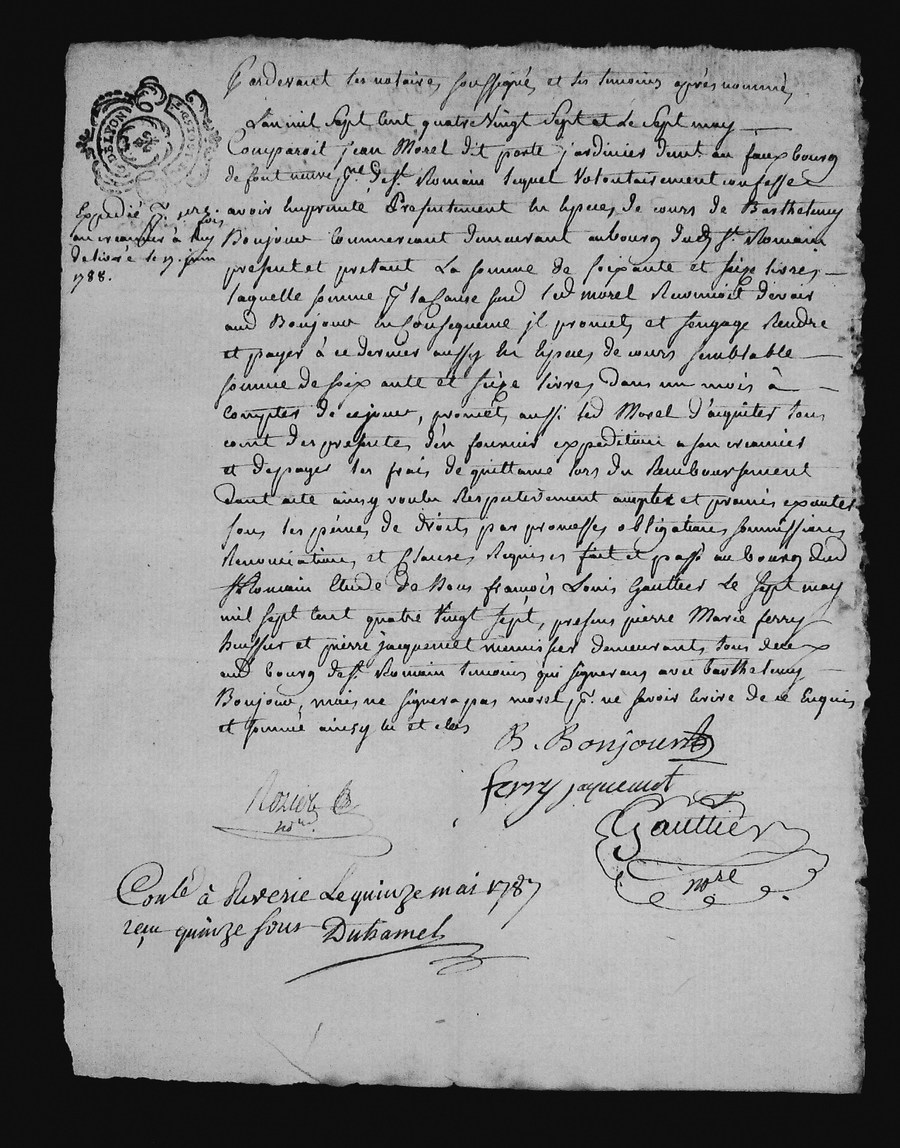 Pardevant les notaires soussignés et les temoins après nommés
L'an mil sept cent quatre vingt sept et le sept may
Comparoit jean Morel dit porte jardinier demt au faux bourg
de font neuve psse de st Romain lequel volontairement confesse
avoir emprunté Presentement en especes de cours de Barthelemy
Bonjour Commercant demeurant au bourg dud st Romain
present et pretant La somme de soixante et seize livres
laquelle somme pr la Cause susd led morel Reconnoit devoir
aud Bonjour en Consequence il promet et s'engage Rendre
et payer à ce dernier aussy en especes de cours semblable
somme de soixante et seize livres dans un mois à
compter de ce jour, promet aussi led Morel d'acquiter tous
cout des presentes d'en fournir expedition a son creancier
et de payer les frais de quittance lors du Remboursement
dont acte ainsy voulu Respectivement accepté et promis executer
sous les peines de droits par promesses obligations soumissions
Renonciations et Clauses Requises fait et passé au bourg dud
st Romain Etude de Nous françois Louis Gaulthier Le sept may
mil sept cent quatre vingt sept, presens pierre Marie ferry
huissier et pierre jacquemet menuisier demeurants tous deux
aud bourg de st Romain temoins qui signerons avec barthelemy
Bonjour, mais ne signera pas morel pr. ne savoir écrire de ce Enquis
et sommé ainsy lu et
DE LYON
Expedié pr.
au creancier à luy
delivré le 17. juin
1788.
B. Bonjour
ferry jacquemot
Gaulthier
nore
Conlé à Riverie Le quinze mai 1787
reçu quinze sous Duhamel